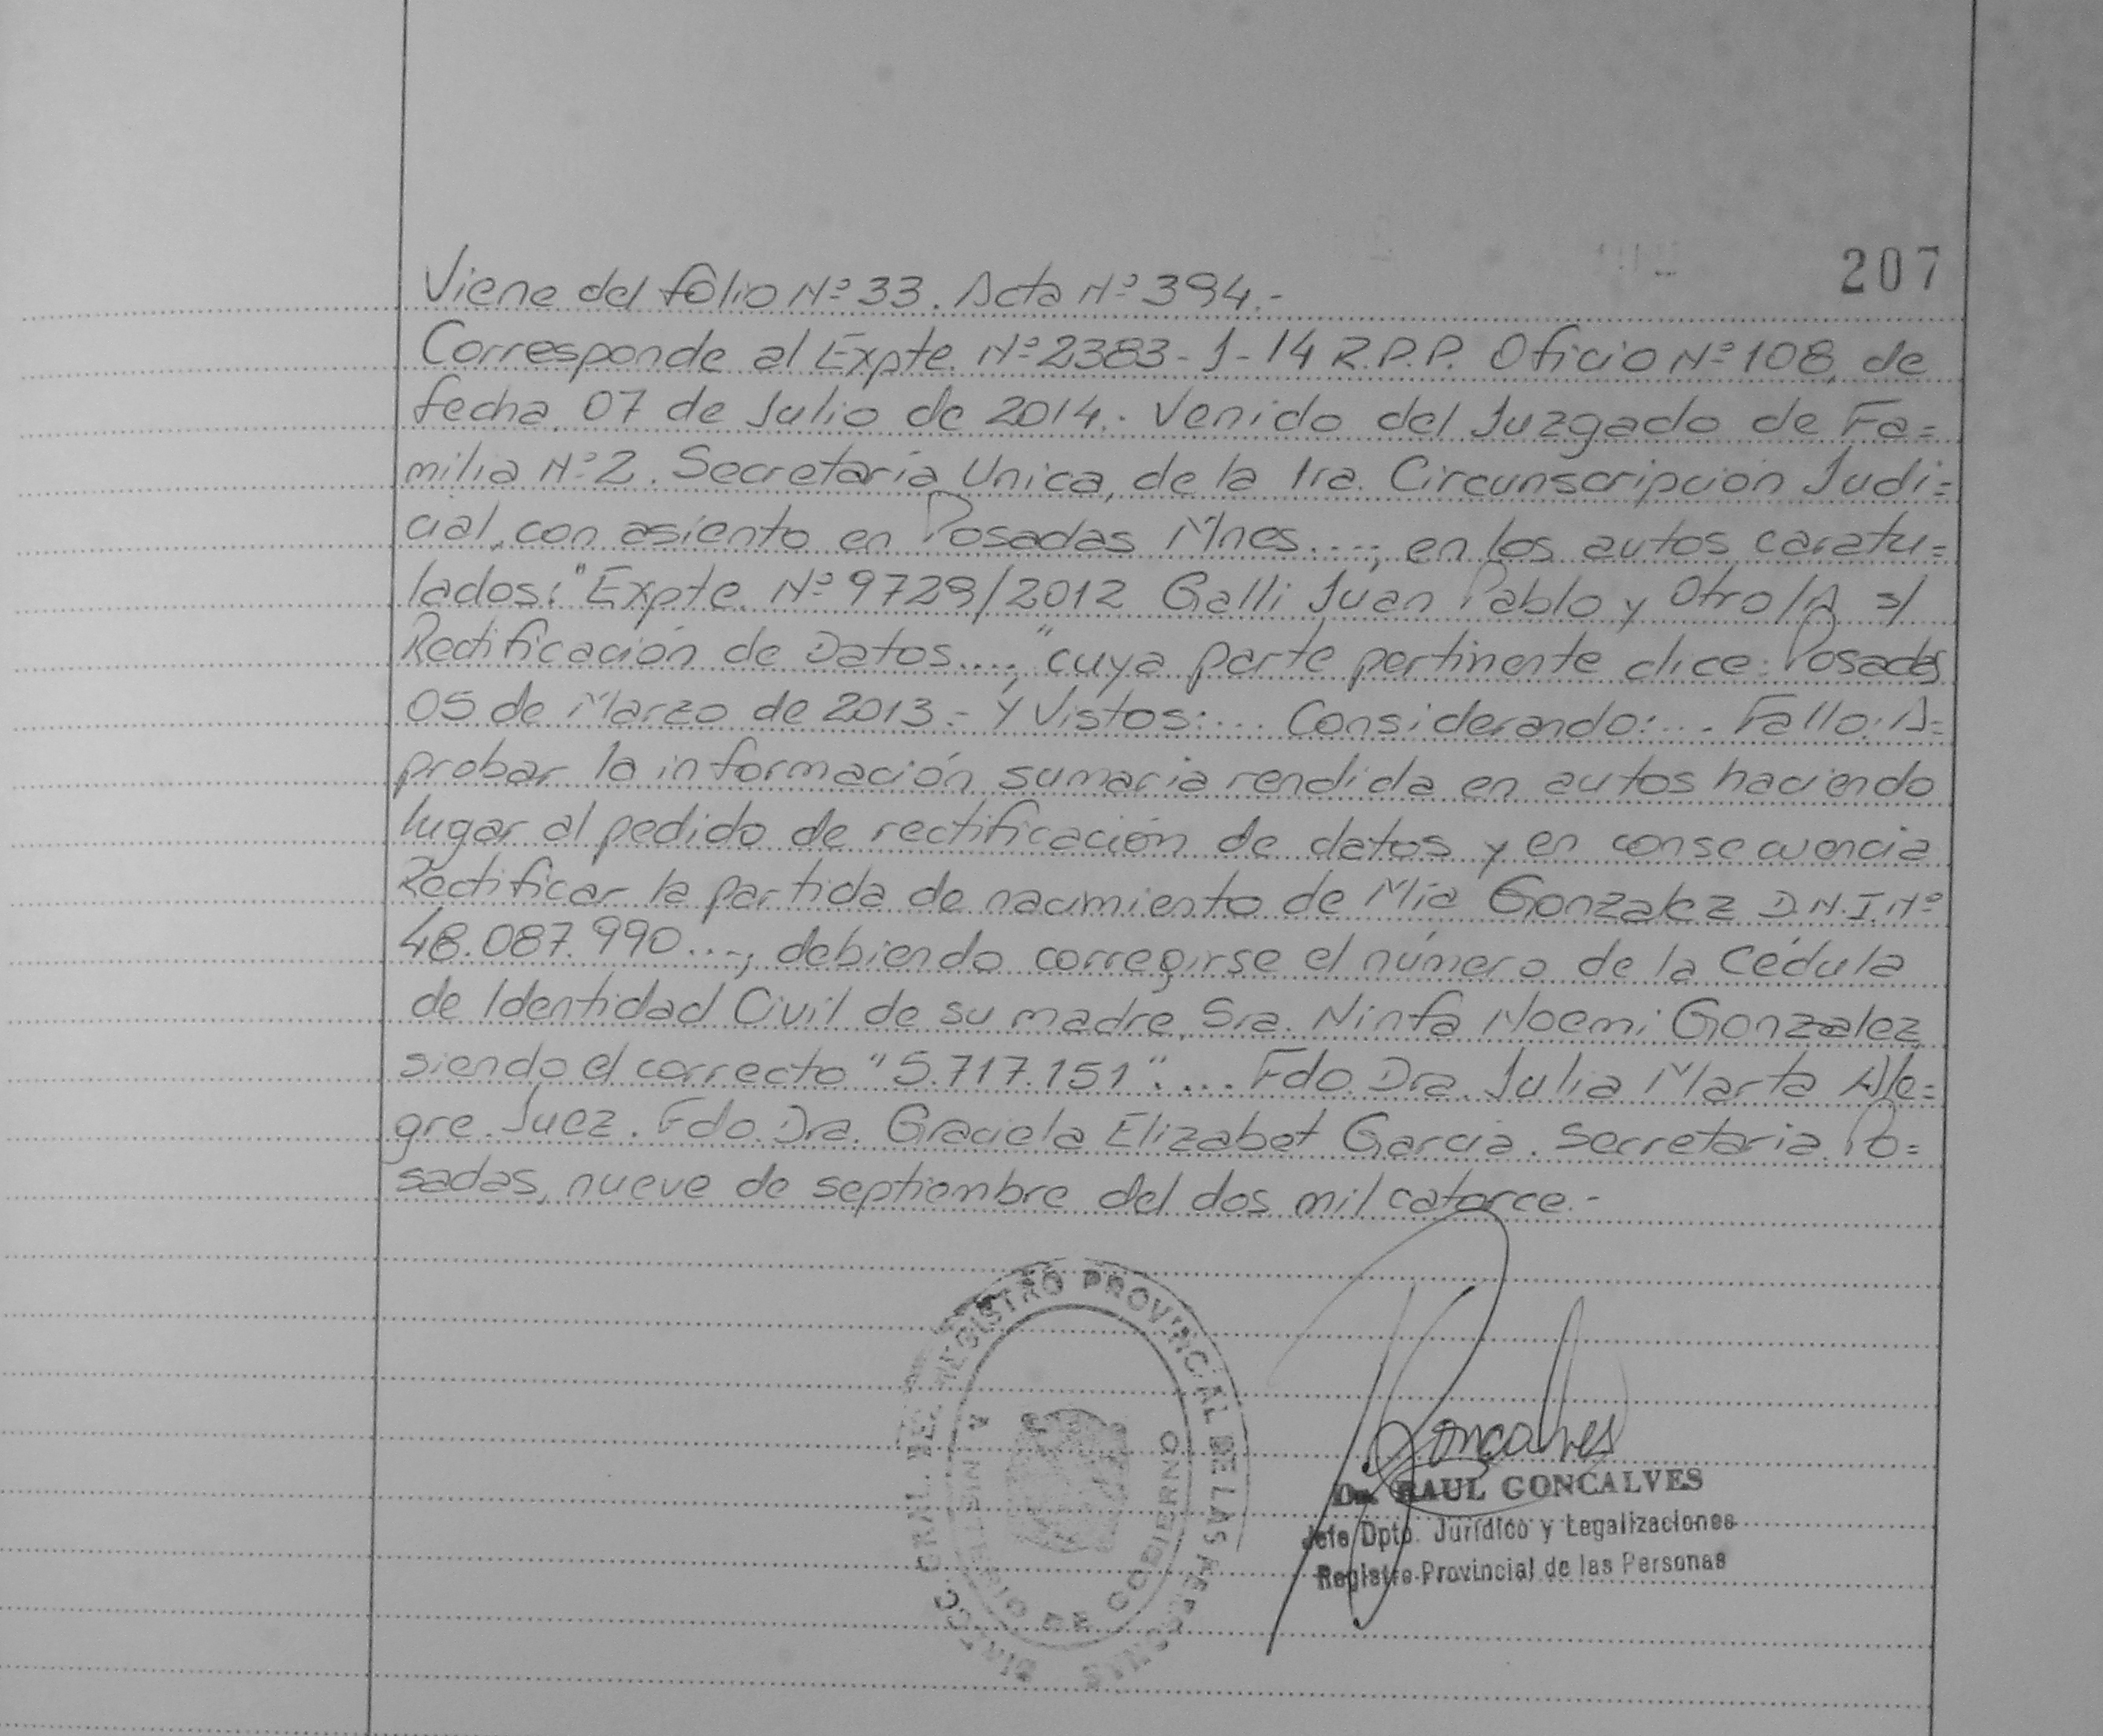 207
Viene del folio Nº 33. Acta Nº 394.-
Corresponde al Expte. Nº 2383-J-14 R.P.P. Oficio Nº 108, de
fecha 07 de Julio de 2014.- Venido del Juzgado de Fa=
milia Nº 2. Secretaría Unica, de la 1ra. Circunscripción Judi=
cial, con asiento en Posadas Mnes...., en los autos caratu=
lados: "Expte. Nº 9729/2012 Galli Juan Pablo y Otro/A s/
Rectificación de Datos....," cuya parte pertinente dice: Posadas
05 de Marzo de 2013.- Y Vistos:... Considerando:... Fallo: A=
probar la información sumaria rendida en autos haciendo
lugar al pedido de rectificación de datos y en consecuencia
Rectificar la partida de nacimiento de Mía Gonzalez D.N.I.Nº
48.087.990..., debiendo corregirse el número de la Cédula
de Identidad Civil de su madre, Sra. Ninfa Noemi Gonzalez,
siendo el correcto "5.717.151".... Fdo. Dra. Julia Marta Ale=
gre. Juez. Fdo. Dra. Graciela Elizabet Garcia. Secretaria. Po=
sadas, nueve de septiembre del dos mil catorce.-
REGISTRO PROVINCIAL DE LAS PERSONAS
MINISTERIO DE GOBIERNO
Goncalves
Dr. RAUL GONCALVES
Jefe Dpto. Jurídico y Legalizaciones
Registro Provincial de las Personas